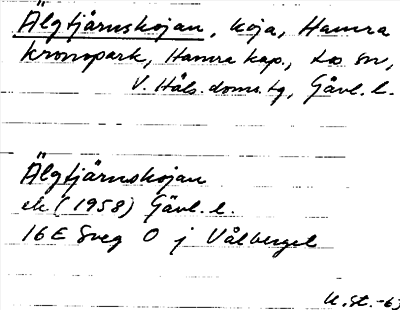 Älgtjärnskojan, koja, Hamra
kronopark, Hamra kap., Los sn,
V. Häls. doms. tg, Gävl. l.
Älgtjärnskojan
ek (1958) Gävl. l.
16E Sveg O j Vålberget
U.St.-63